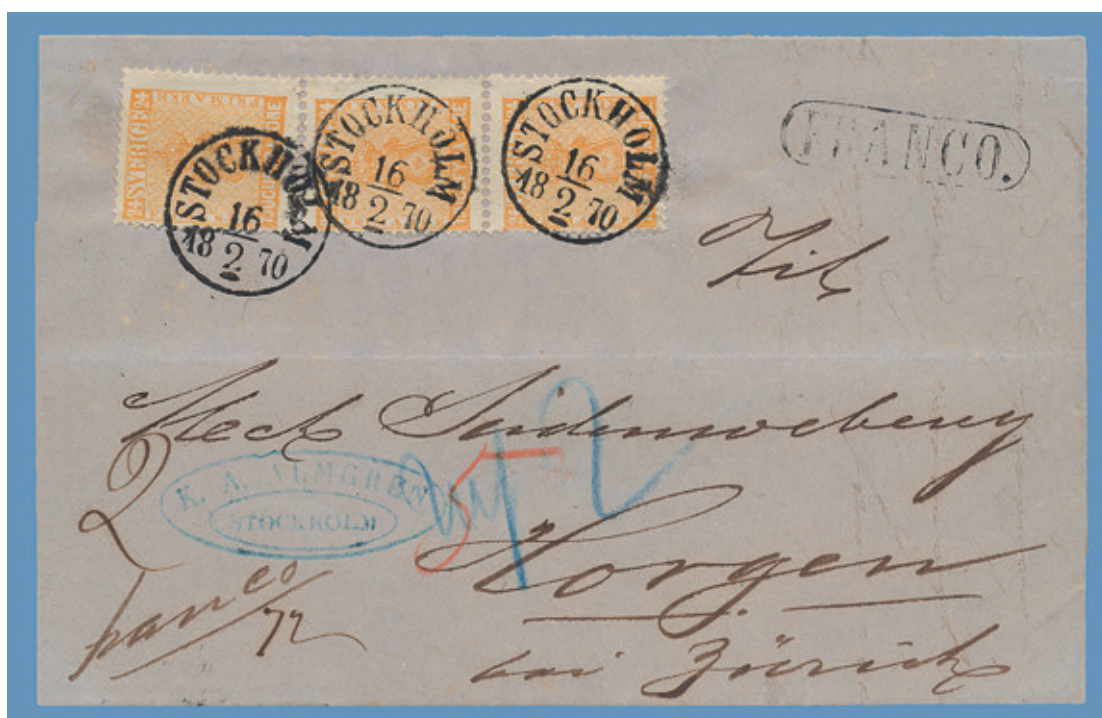 FRIMARKE
STOCKHOLM
16
18 2 70
STOCKHOLM
16
18 2 70
STOCKHOLM
16
18 2 70
FRANCO.
Mech Seidenweberey
2
K. A. ALMGREN
STOCKHOLM
5
2
Horgen
franco
72
bei Zürich